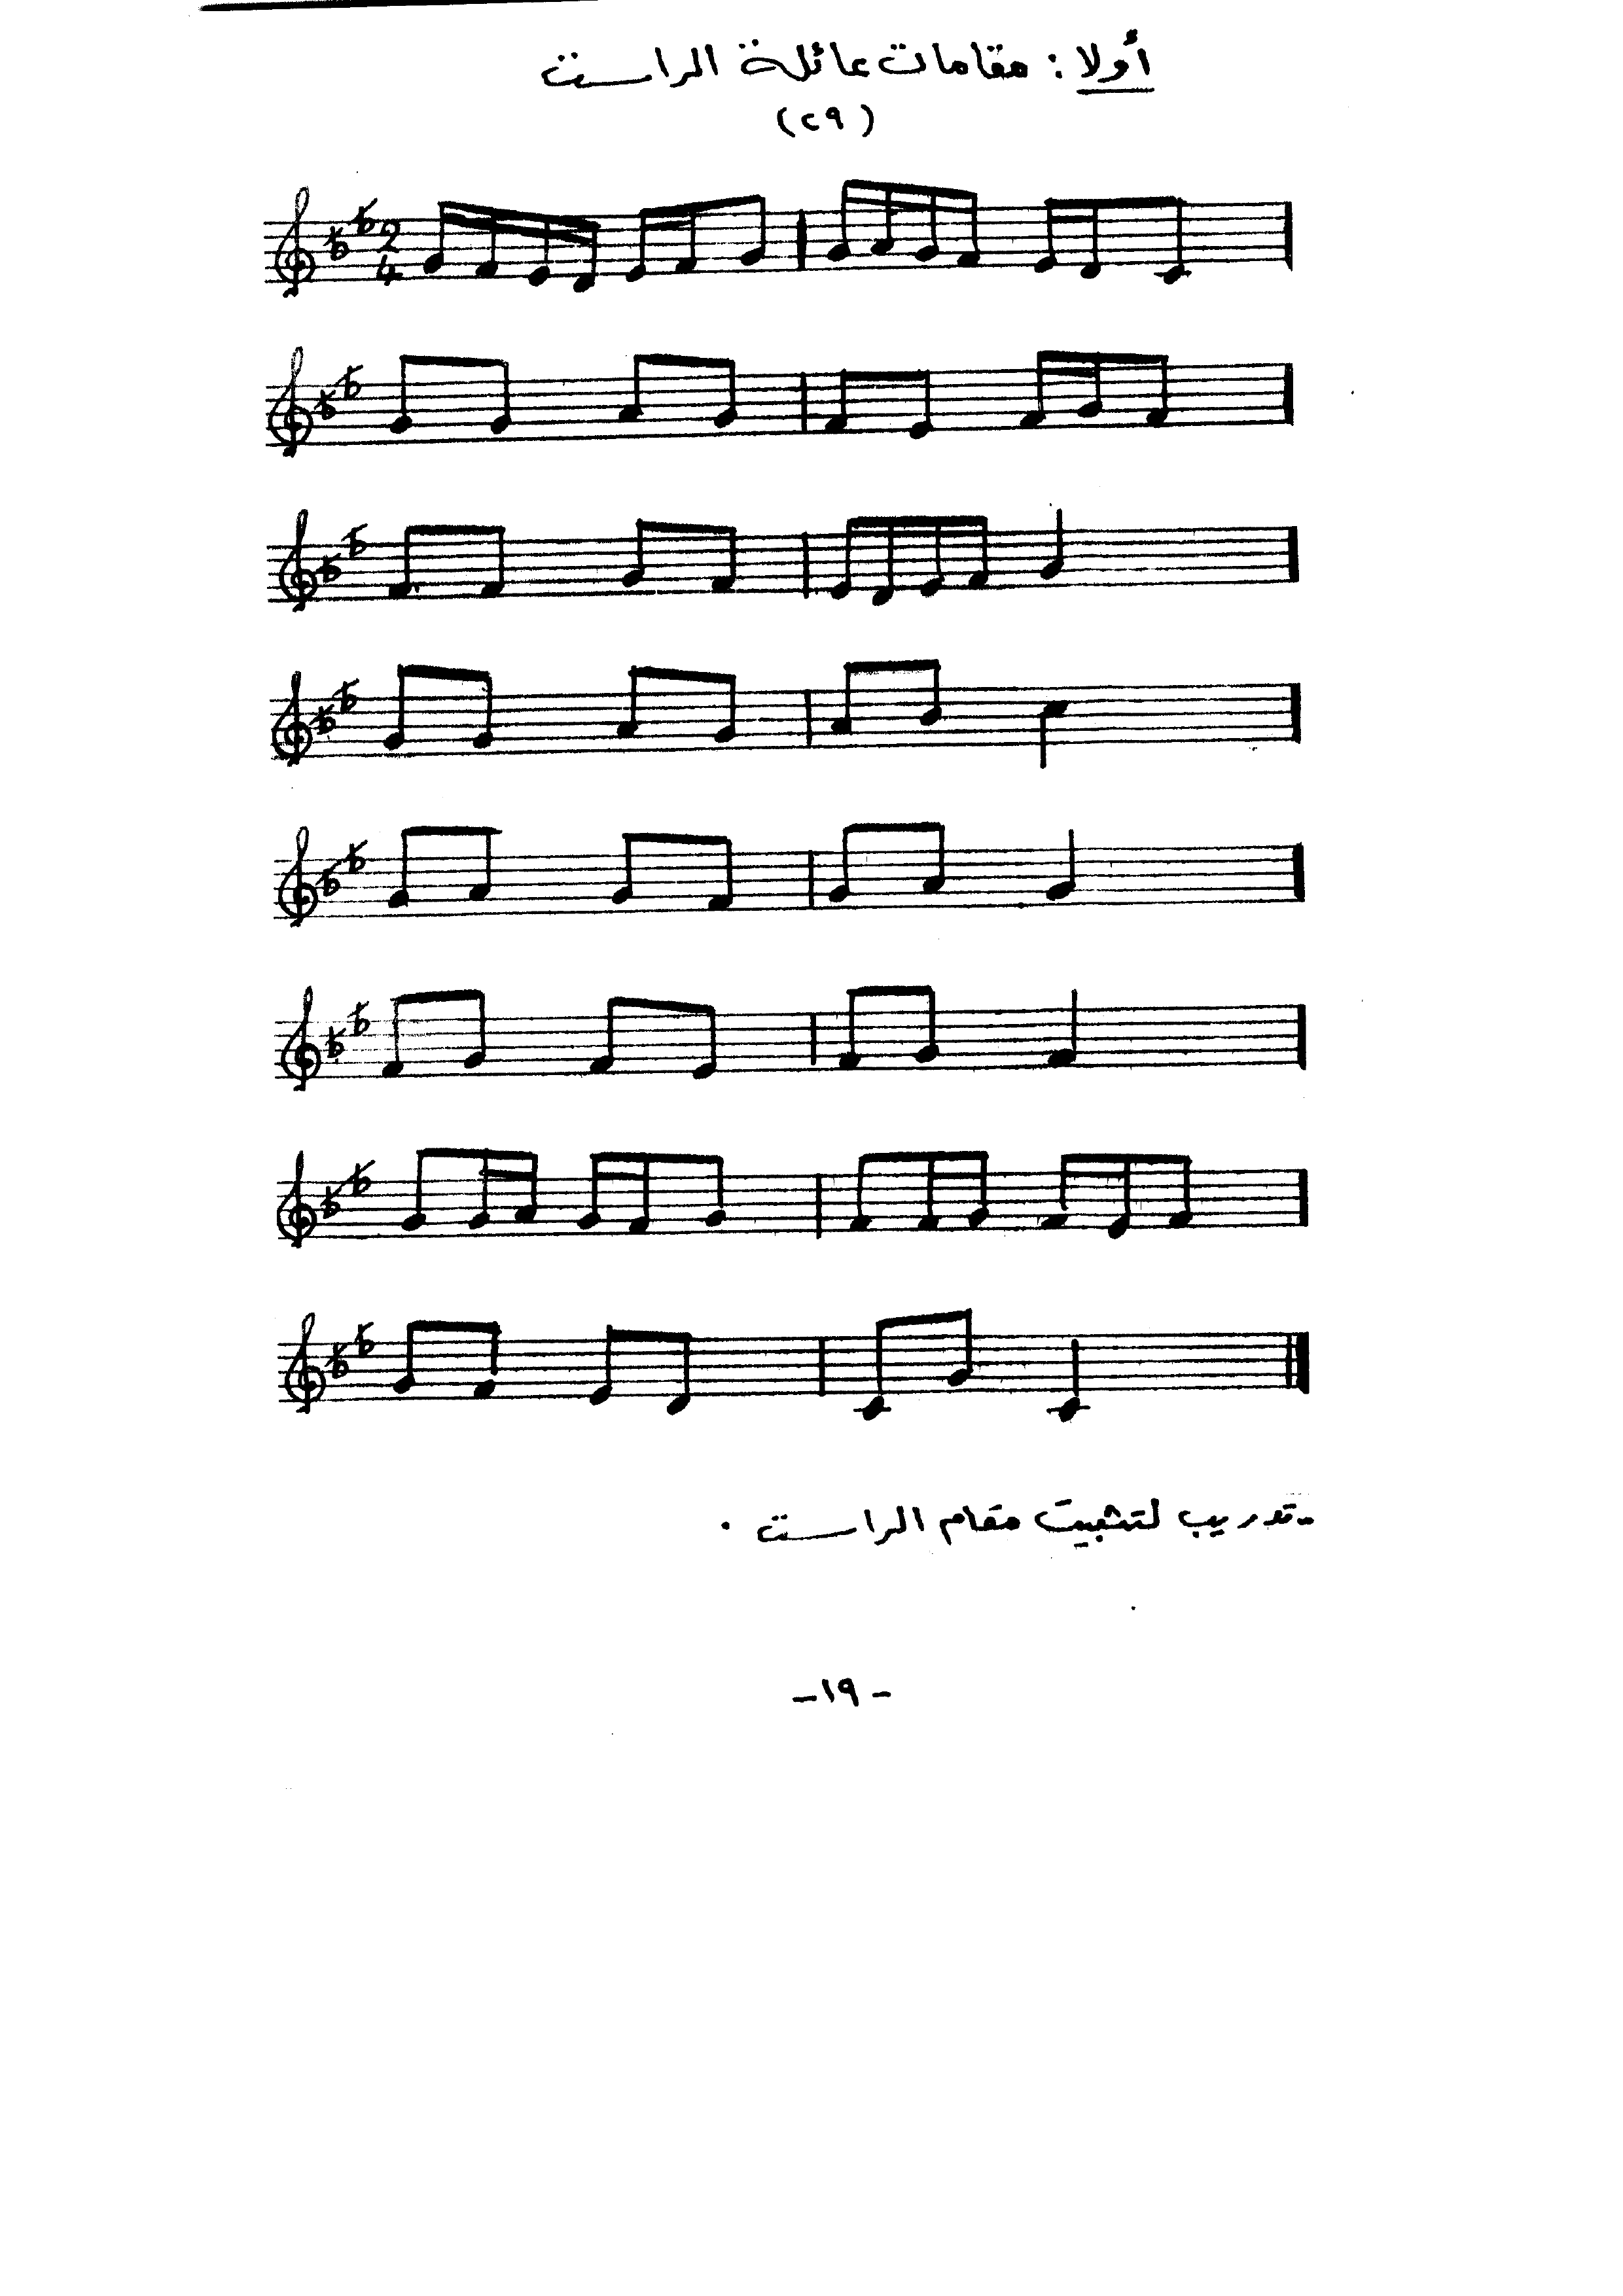 أولا : مقامات عائلة الراست
(٢٩)
2
4
- تدريب لتثبيت مقام الراست .
- ١٩ -